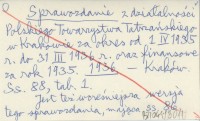 Sprawozdanie z działalności
Polskiego Towarzystwa Tatrzańskiego
w Krakowie za okres od 1 IV 1935
r. do 31 III 1936 r. oraz finansowe
za rok 1935. 1936. Kraków.
Ss. 88, tab. 1.
Jest też wcześniejsza wersja
tego sprawozdania, mająca ss.